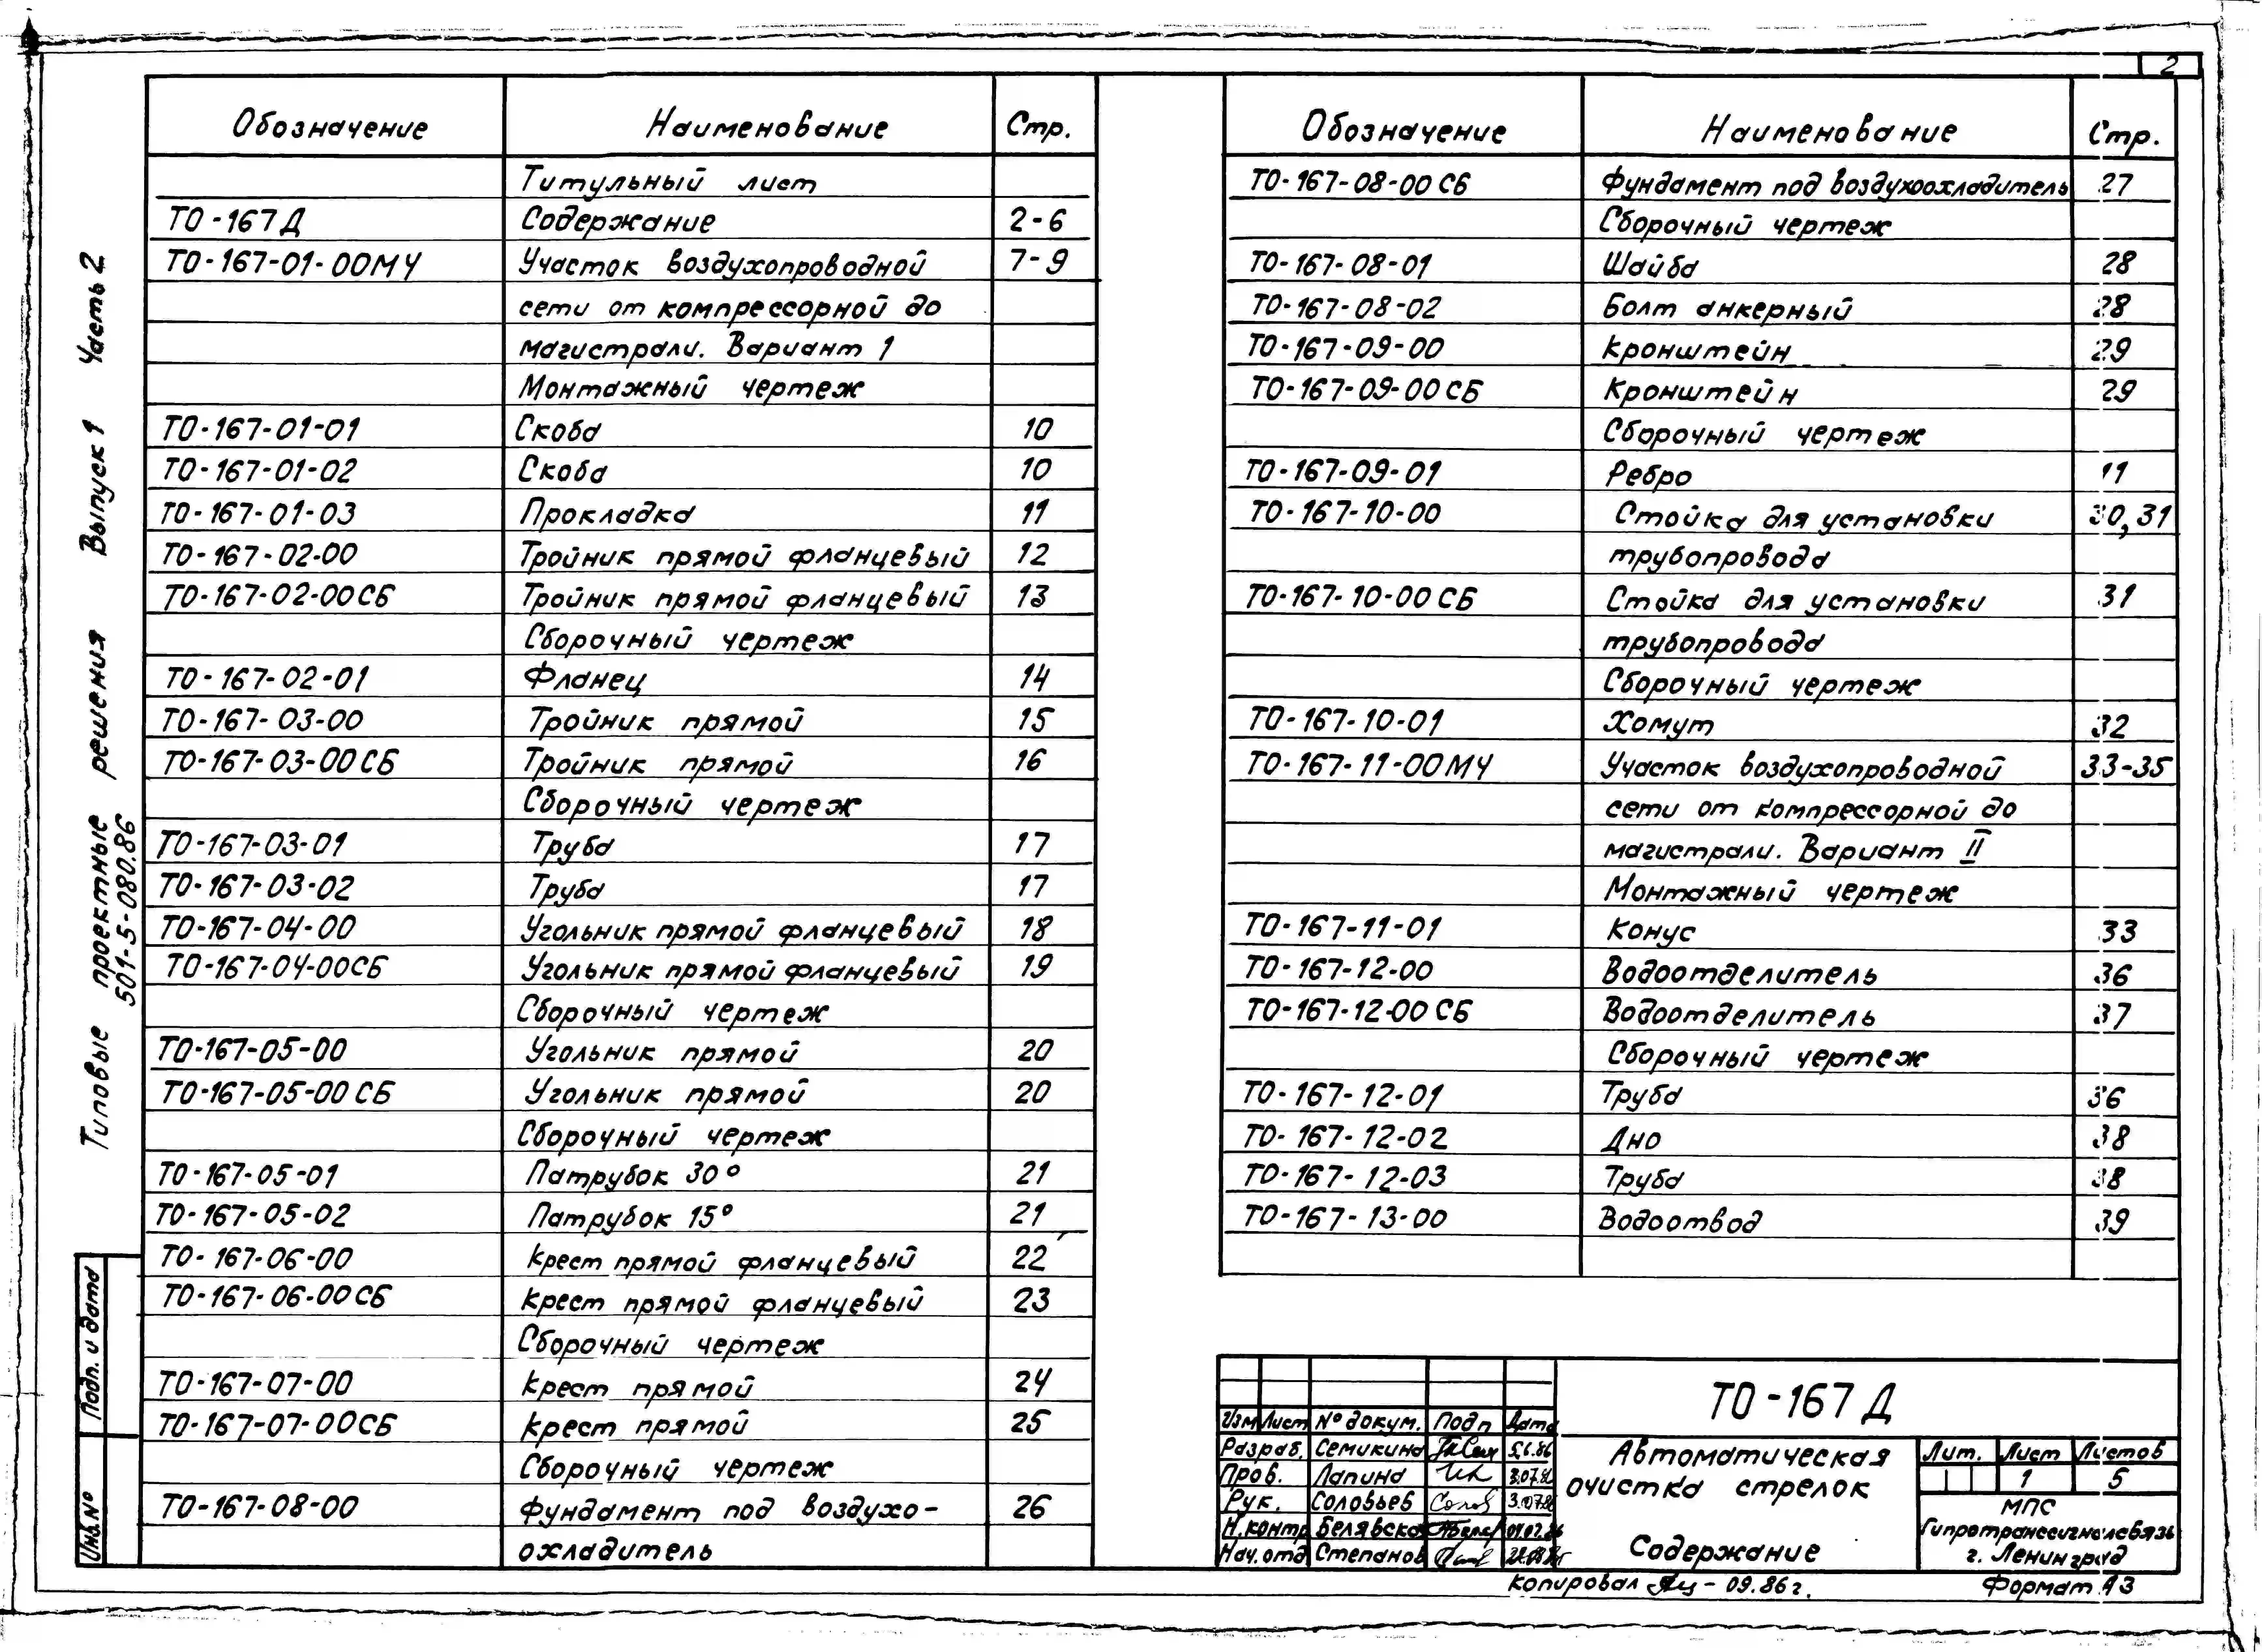 2
Обозначение Наименование Стр.
Титульный лист
ТО-167Д Содержание 2-6
ТО-167-01-00МЧ Участок воздухопроводной 7-9
сети от компрессорной до
магистрали. Вариант 1
Монтажный чертеж
ТО-167-01-01 Скоба 10
ТО-167-01-02 Скоба 10
ТО-167-01-03 Прокладка 11
ТО-167-02-00 Тройник прямой фланцевый 12
ТО-167-02-00СБ Тройник прямой фланцевый 13
Сборочный чертеж
ТО-167-02-01 Фланец 14
ТО-167-03-00 Тройник прямой 15
ТО-167-03-00СБ Тройник прямой 16
Сборочный чертеж
ТО-167-03-01 Труба 17
ТО-167-03-02 Труба 17
ТО-167-04-00 Угольник прямой фланцевый 18
ТО-167-04-00СБ Угольник прямой фланцевый 19
Сборочный чертеж
ТО-167-05-00 Угольник прямой 20
ТО-167-05-00СБ Угольник прямой 20
Сборочный чертеж
ТО-167-05-01 Патрубок 30° 21
ТО-167-05-02 Патрубок 15° 21
ТО-167-06-00 Крест прямой фланцевый 22
ТО-167-06-00СБ Крест прямой фланцевый 23
Сборочный чертеж
ТО-167-07-00 Крест прямой 24
ТО-167-07-00СБ Крест прямой 25
Сборочный чертеж
ТО-167-08-00 Фундамент под воздухо- 26
охладитель
Обозначение Наименование Стр.
ТО-167-08-00СБ Фундамент под воздухоохладитель 27
Сборочный чертеж
ТО-167-08-01 Шайба 28
ТО-167-08-02 Болт анкерный 28
ТО-167-09-00 Кронштейн 29
ТО-167-09-00СБ Кронштейн 29
Сборочный чертеж
ТО-167-09-01 Ребро 11
ТО-167-10-00 Стойка для установки 30,31
трубопровода
ТО-167-10-00СБ Стойка для установки 31
трубопровода
Сборочный чертеж
ТО-167-10-01 Хомут 32
ТО-167-11-00МЧ Участок воздухопроводной 33-35
сети от компрессорной до
магистрали. Вариант II
Монтажный чертеж
ТО-167-11-01 Конус 33
ТО-167-12-00 Водоотделитель 36
ТО-167-12-00СБ Водоотделитель 37
Сборочный чертеж
ТО-167-12-01 Труба 36
ТО-167-12-02 Дно 38
ТО-167-12-03 Труба 38
ТО-167-13-00 Водоотвод 39
Типовые проектные решения Выпуск 1 Часть 2
501-5-080.86
Подп. и дата
Инв.№
ТО-167Д
Изм Лист № докум. Подп Дата
Разраб. Семикина 5.6.86
Пров. Лапина
Рук. Соловьев 3.07.86
Н.контр Белявска
Нач.отд Степанов
Автоматическая
очистка стрелок
Содержание
Лит. Лист Листов
1 5
МПС
Гипротранссигналсвязь
г. Ленинград
Копировал - 09.86г. Формат А3